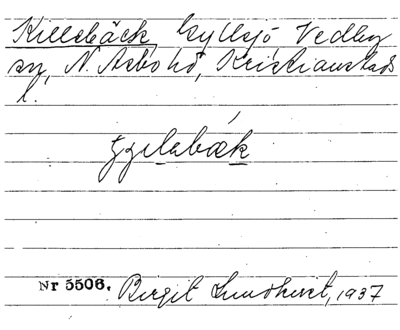 Killebäck, Gyllsjö Vedby
sn, N. Åsbo hd, Kristianstads
l.
Nr 5506. Birgit Lundkvist, 1937